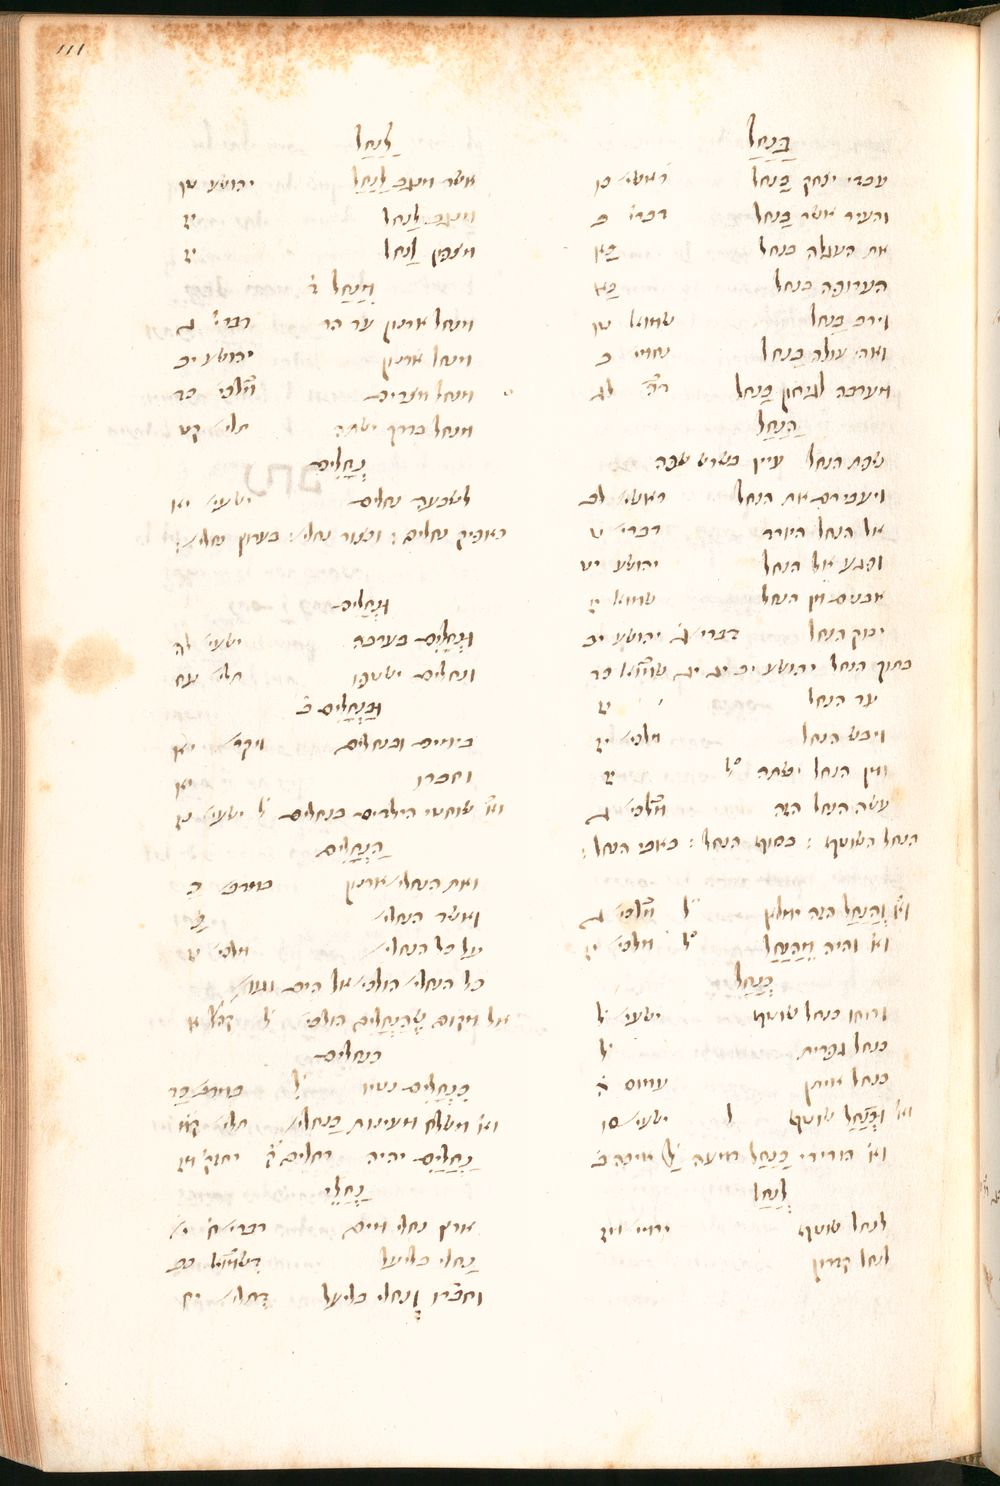 111
בַּנַחַל
עבדי יצחק בַּנחל ראשי׳ כו
והעיר אשר בַּנחל דברי׳ ב
את העגלה בנחל כא
הערופה בנחל כא
וירב בַּנחל שמוא׳ טו
ואהי עולה בַנחל נחמי׳ ב
מערבה לגיחון בַּנחל לג
הַנַחַל
שפת הנחל עיין בשרש שפה
ויעבירם את הנחל ראשי׳ לב
אל הנחל היורד דברי׳ ט
ופגע אל הנחל יהושע יט
אבנים מן הנחל שמוא׳ יז
יבוק הנחל דברי׳ ג יהושע יב
בתוך הנחל יהושע יב יג יג שמו׳ב כד
עד הנחל יז
וייבש הנחל מלכי׳ יז
ומן הנחל ישתה ל׳ יז
עשה הנחל הזה מלכי׳ ג
הנחל השוטף : בסוף הנחל : באבי הנחל :
וא׳ וְהַנַחַל הזה ימלא ל׳ מלכי׳ ג
וא׳ והיה מֵהַנַחַל ל׳ מלכי׳ יז
כְּנַחַל
ורוחו כנחל שוטף ישעי׳ ל
כנחל גפרית ל
כנחל איתן עמוס ה
וא׳ וּכְנַחַל שוטף ל ישעי׳ סו
וא׳ הורידי כַנַחַל דמעה ל׳ איכה ב
לְנַחַל
לנחל שוטף ירמי׳ מז
לנחל קדרון
לַנַחַל
אשר מנגב לַנַחַל יהושע טז
מנגב לַנחל יז
מצפון לַנחל יז
וְנַחַל ד׳
ונחל ארנון עד הר דברי׳ ג
ונחל ארנון יהושע יב
ונחל מצרים מלכי׳ כד
מנחל בדרך ישתה תלי׳ קי
נְחָלִים
לשבעה נחלים ישעי׳ יא
כאפיק נחלים : ובצור נחלי׳ : בערוץ נחלי׳ :
וּנְחָלִים
וּנְחָלִים בערבה ישעי׳ לה
ונחלים ישטפו תלי׳ עח
וּבַנְחָלִים ב׳
בימים ובנחלים ויקר׳ יא
וחברו יא
וא׳ שוחטי הילדים בנחלים ל׳ ישעי׳ נז
הַנְחָלִים
ואת הנחלי׳ ארנון במדב׳ כא
ואשד הנחלי׳ כא
על כל הנחלי׳ מלכי׳ יח
כל הנחלי׳ הולכי׳ אל הים וגו׳
אל מקום שֶׁהַנְחָלִים הולכי׳ ל׳ קהל׳ א
כנחלים
כִּנְחָלִים נטיו ל׳ במדב׳ כד
וא׳ משלח מעינות בַּנחלי׳ תלי׳ קד
נַחֲלַיִם יהיה יחזק׳ מז
נַחֲלֵי
ארץ נחלי מים דברי׳ ח י׳
נַחלי בליעל דשמו׳ב כב
וחברו וְנחלי בליעל דתלי׳ יח